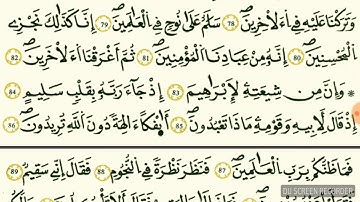 وَتَرَكْنَا عَلَيْهِ فِے اِ۬لَاخِرِينَۖ 78 سَلَٰمٌ عَلَىٰ نُوحٖ فِے اِ۬لْعَٰلَمِينَۖ 79 إِنَّا كَذَٰلِكَ نَجْزِے
اِ۬لْمُحْسِنِينَۖ 80 إِنَّهُۥ مِنْ عِبَادِنَا اَ۬لْمُومِنِينَۖ 81 ثُمَّ أَغْرَقْنَا اَ۬لَاخِرِينَۖ 82
۞ وَإِنَّ مِن شِيعَتِهِۦ لَإِبْرَٰهِيمَ 83 إِذْ جَآءَ رَبَّهُۥ بِقَلْبٖ سَلِيمٍ 84
إِذْ قَالَ لِأَبِيهِ وَقَوْمِهِۦ مَاذَا تَعْبُدُونَۖ 85 أَئِفْكاً اٰلِهَةٗ دُونَ اَ۬للَّهِ تُرِيدُونَۖ 86
فَمَا ظَنُّكُم بِرَبِّ اِ۬لْعَٰلَمِينَۖ 87 فَنَظَرَ نَظْرَةٗ فِے اِ۬لنُّجُومِ 88 فَقَالَ إِنِّے سَقِيمٞ 89
DU SCREEN RECORDER